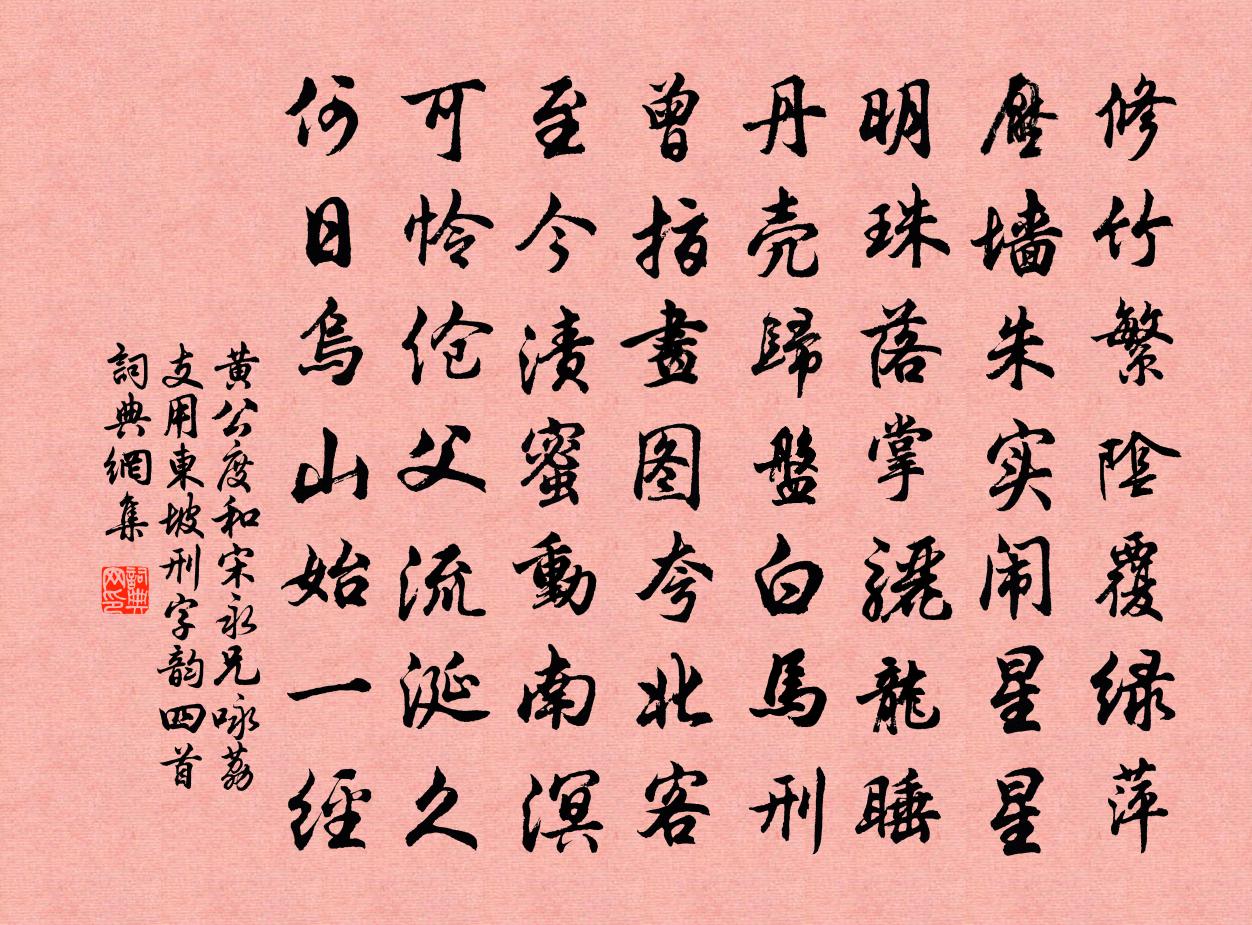 修竹繁陰覆绿萍
壓墙朱实闹星星
明珠落掌驪龍睡
丹壳歸盤白馬刑
曾指畫图夸北客
至今漬蜜動南溟
可怜伧父流涎久
何日烏山始一經
黄公度和宋永兄咏荔
支用東坡刑字韵四首
詞典網集
詞典
网印